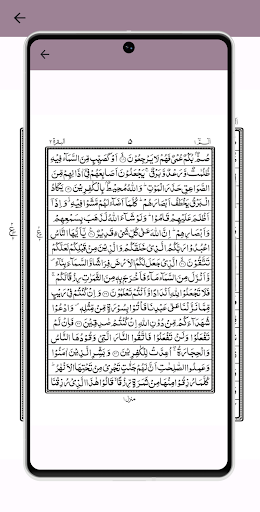 البقرة ٢
٥
الٓمّٓ ١
صُمٌّۢ بُكْمٌ عُمْیٌ فَهُمْ لَا یَرْجِعُوْنَ ۙ اَوْ كَصَیِّبٍ مِّنَ السَّمَآءِ فِیْهِ
ظُلُمٰتٌ وَّ رَعْدٌ وَّ بَرْقٌ ۚ یَجْعَلُوْنَ اَصَابِعَهُمْ فِیْۤ اٰذَانِهِمْ مِّنَ
الصَّوَاعِقِ حَذَرَ الْمَوْتِ ؕ وَ اللّٰهُ مُحِیْطٌۢ بِالْكٰفِرِیْنَ یَكَادُ
الْبَرْقُ یَخْطَفُ اَبْصَارَهُمْ ؕ كُلَّمَاۤ اَضَآءَ لَهُمْ مَّشَوْا فِیْهِ ۙ وَ اِذَاۤ
اَظْلَمَ عَلَیْهِمْ قَامُوْا ؕ وَ لَوْ شَآءَ اللّٰهُ لَذَهَبَ بِسَمْعِهِمْ
وَ اَبْصَارِهِمْ ؕ اِنَّ اللّٰهَ عَلٰى كُلِّ شَیْءٍ قَدِیْرٌ یٰۤاَیُّهَا النَّاسُ
اعْبُدُوْا رَبَّكُمُ الَّذِیْ خَلَقَكُمْ وَ الَّذِیْنَ مِنْ قَبْلِكُمْ لَعَلَّكُمْ
تَتَّقُوْنَ ۙ الَّذِیْ جَعَلَ لَكُمُ الْاَرْضَ فِرَاشًا وَّ السَّمَآءَ بِنَآءً ۪
وَّ اَنْزَلَ مِنَ السَّمَآءِ مَآءً فَاَخْرَجَ بِهٖ مِنَ الثَّمَرٰتِ رِزْقًا لَّكُمْ ۚ
فَلَا تَجْعَلُوْا لِلّٰهِ اَنْدَادًا وَّ اَنْتُمْ تَعْلَمُوْنَ وَ اِنْ كُنْتُمْ فِیْ رَیْبٍ
مِّمَّا نَزَّلْنَا عَلٰى عَبْدِنَا فَاْتُوْا بِسُوْرَةٍ مِّنْ مِّثْلِهٖ ۪ وَ ادْعُوْا
شُهَدَآءَكُمْ مِّنْ دُوْنِ اللّٰهِ اِنْ كُنْتُمْ صٰدِقِیْنَ فَاِنْ لَّمْ
تَفْعَلُوْا وَ لَنْ تَفْعَلُوْا فَاتَّقُوا النَّارَ الَّتِیْ وَ قُوْدُهَا النَّاسُ
وَ الْحِجَارَةُ ۖۚ اُعِدَّتْ لِلْكٰفِرِیْنَ وَ بَشِّرِ الَّذِیْنَ اٰمَنُوْا
وَ عَمِلُوا الصّٰلِحٰتِ اَنَّ لَهُمْ جَنّٰتٍ تَجْرِیْ مِنْ تَحْتِهَا الْاَنْهٰرُ ؕ
كُلَّمَا رُزِقُوْا مِنْهَا مِنْ ثَمَرَةٍ رِّزْقًا ۙ قَالُوْا هٰذَا الَّذِیْ رُزِقْنَا
منزل ١